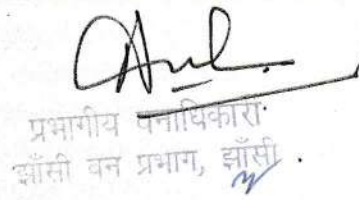 प्रभागीय वनाधिकारी
झाँसी वन प्रभाग, झाँसी.